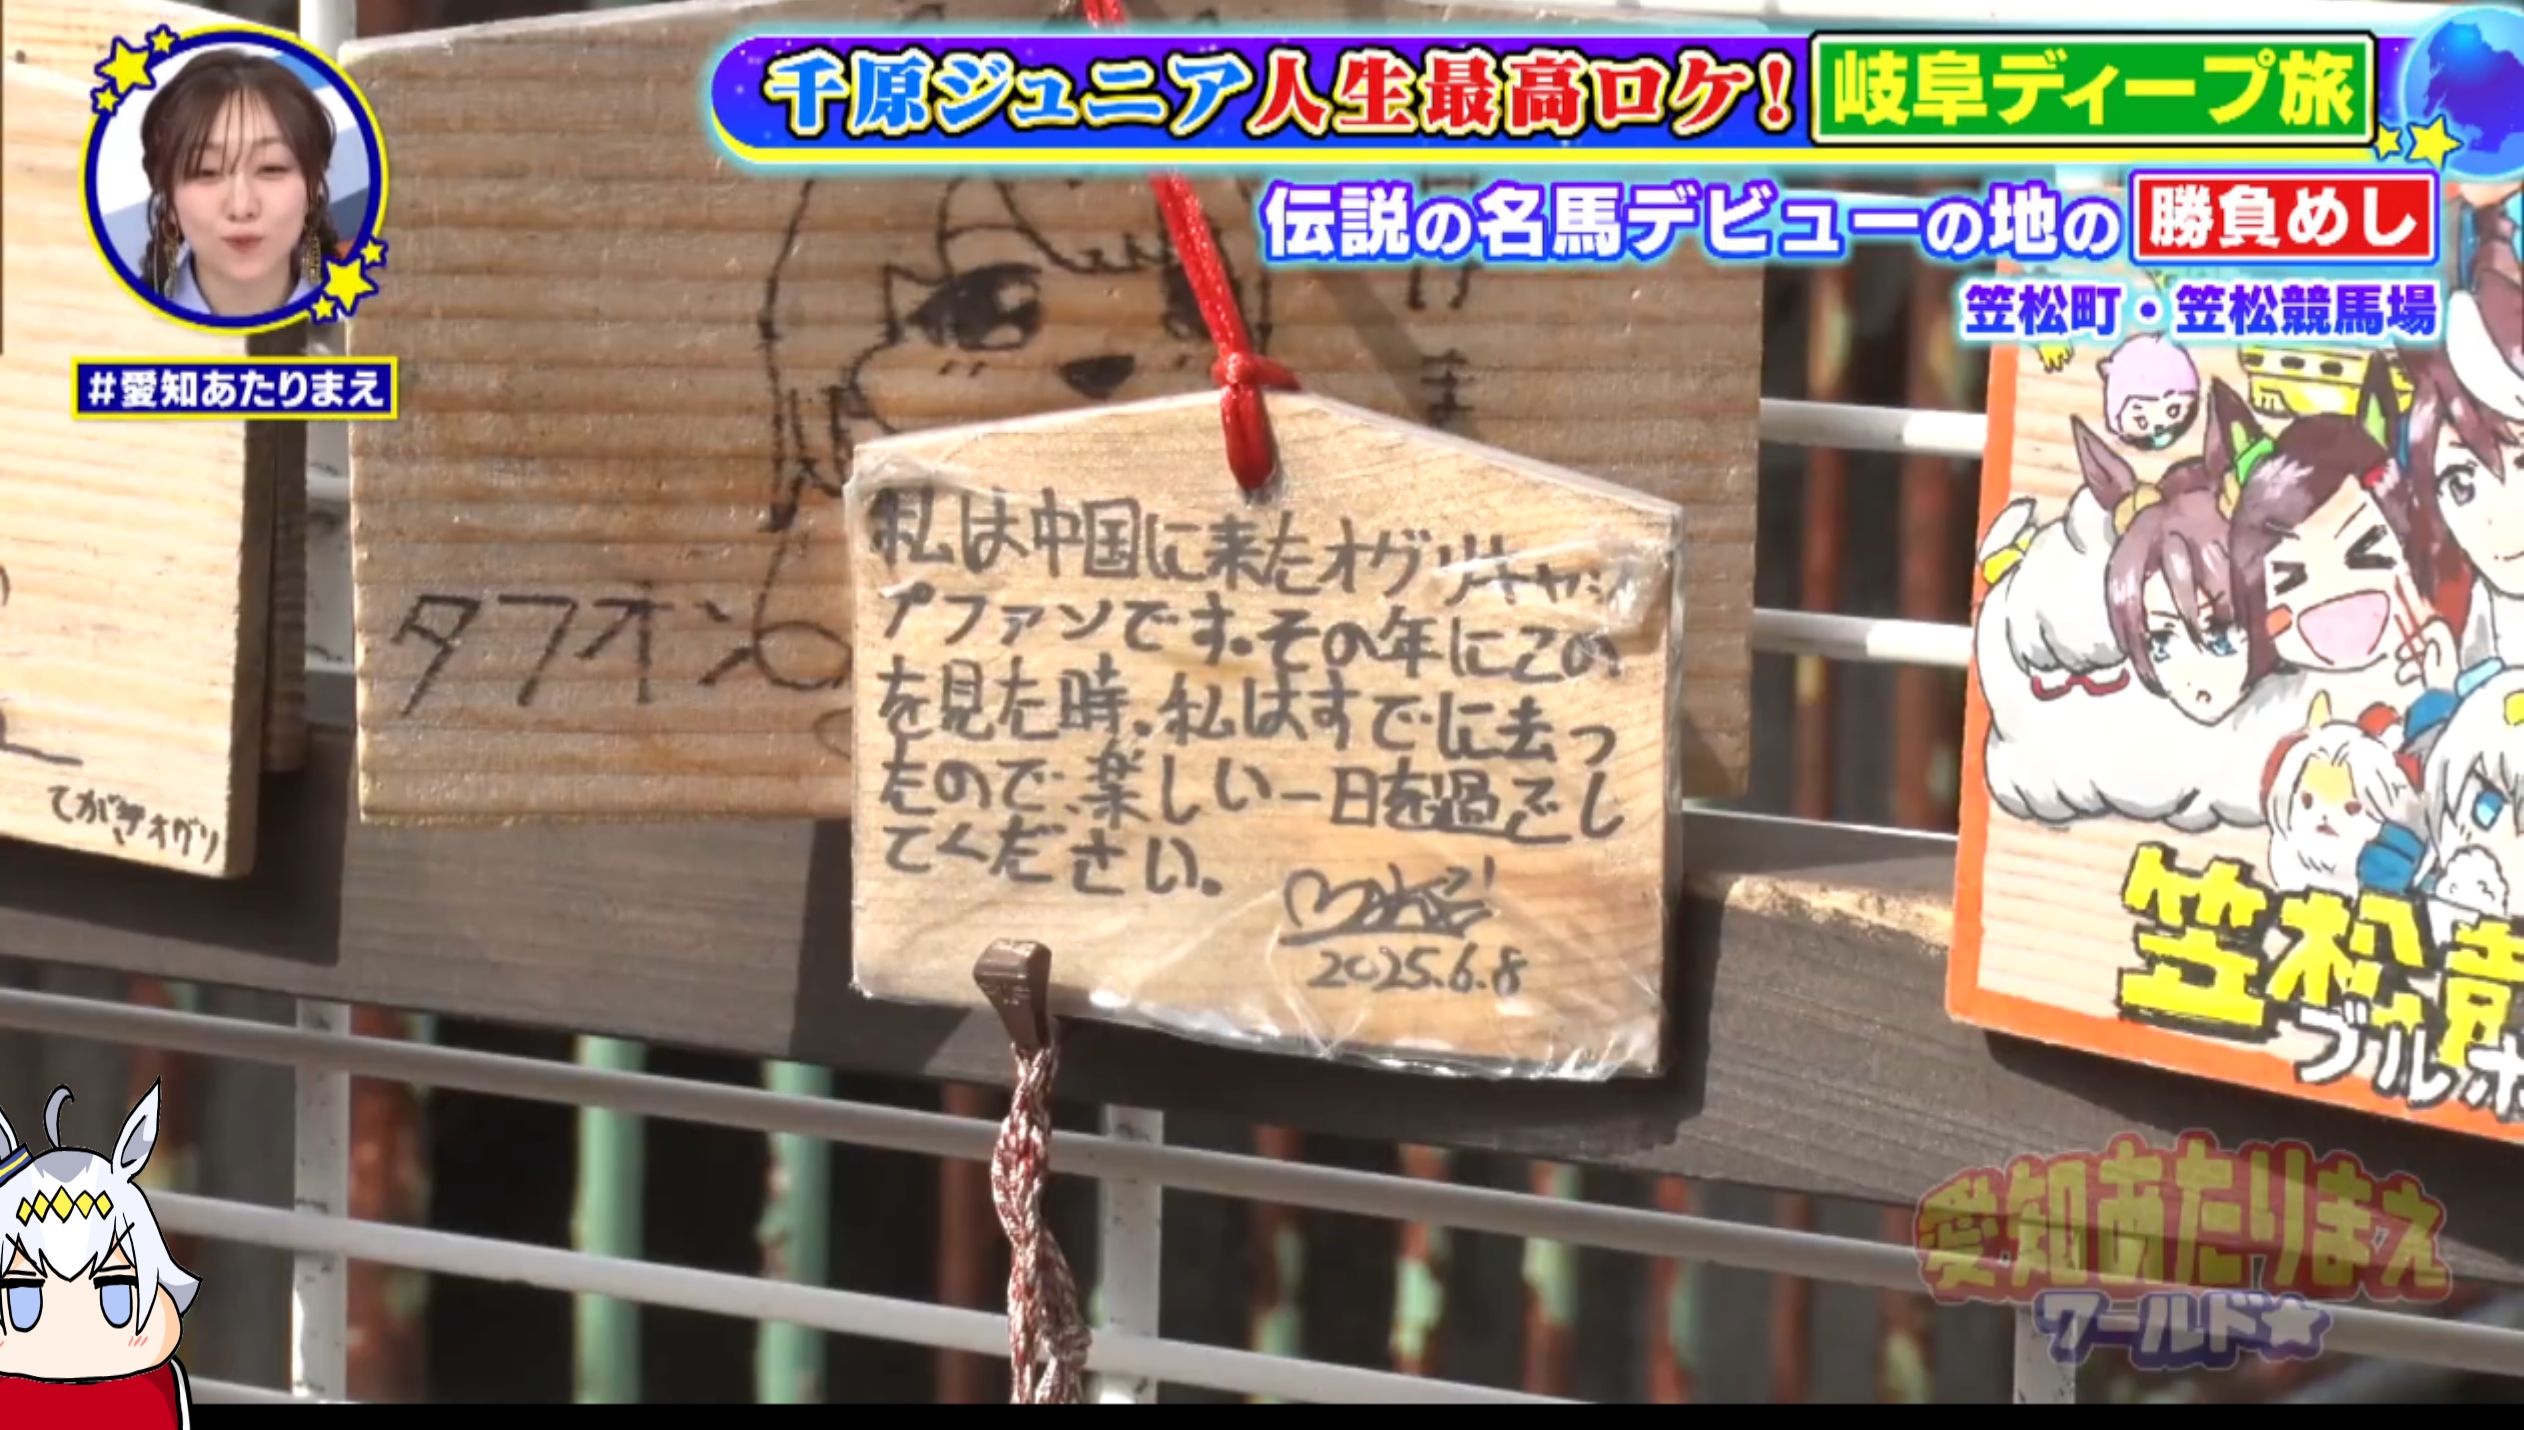 千原ジュニア人生最高ロケ!岐阜ディープ旅
伝説の名馬デビューの地の勝負めし
笠松町・笠松競馬場
#愛知あたりまえ
タフオン
私は中国に来たオグリキャッ
プファンです。その年にこの
を見た時、私はすでに去っ
たので、楽しい一日を過でし
てください。
2025.6.8
てがきオグリ
笠松
ブルボ
愛知あたりまえ
ワールド☆